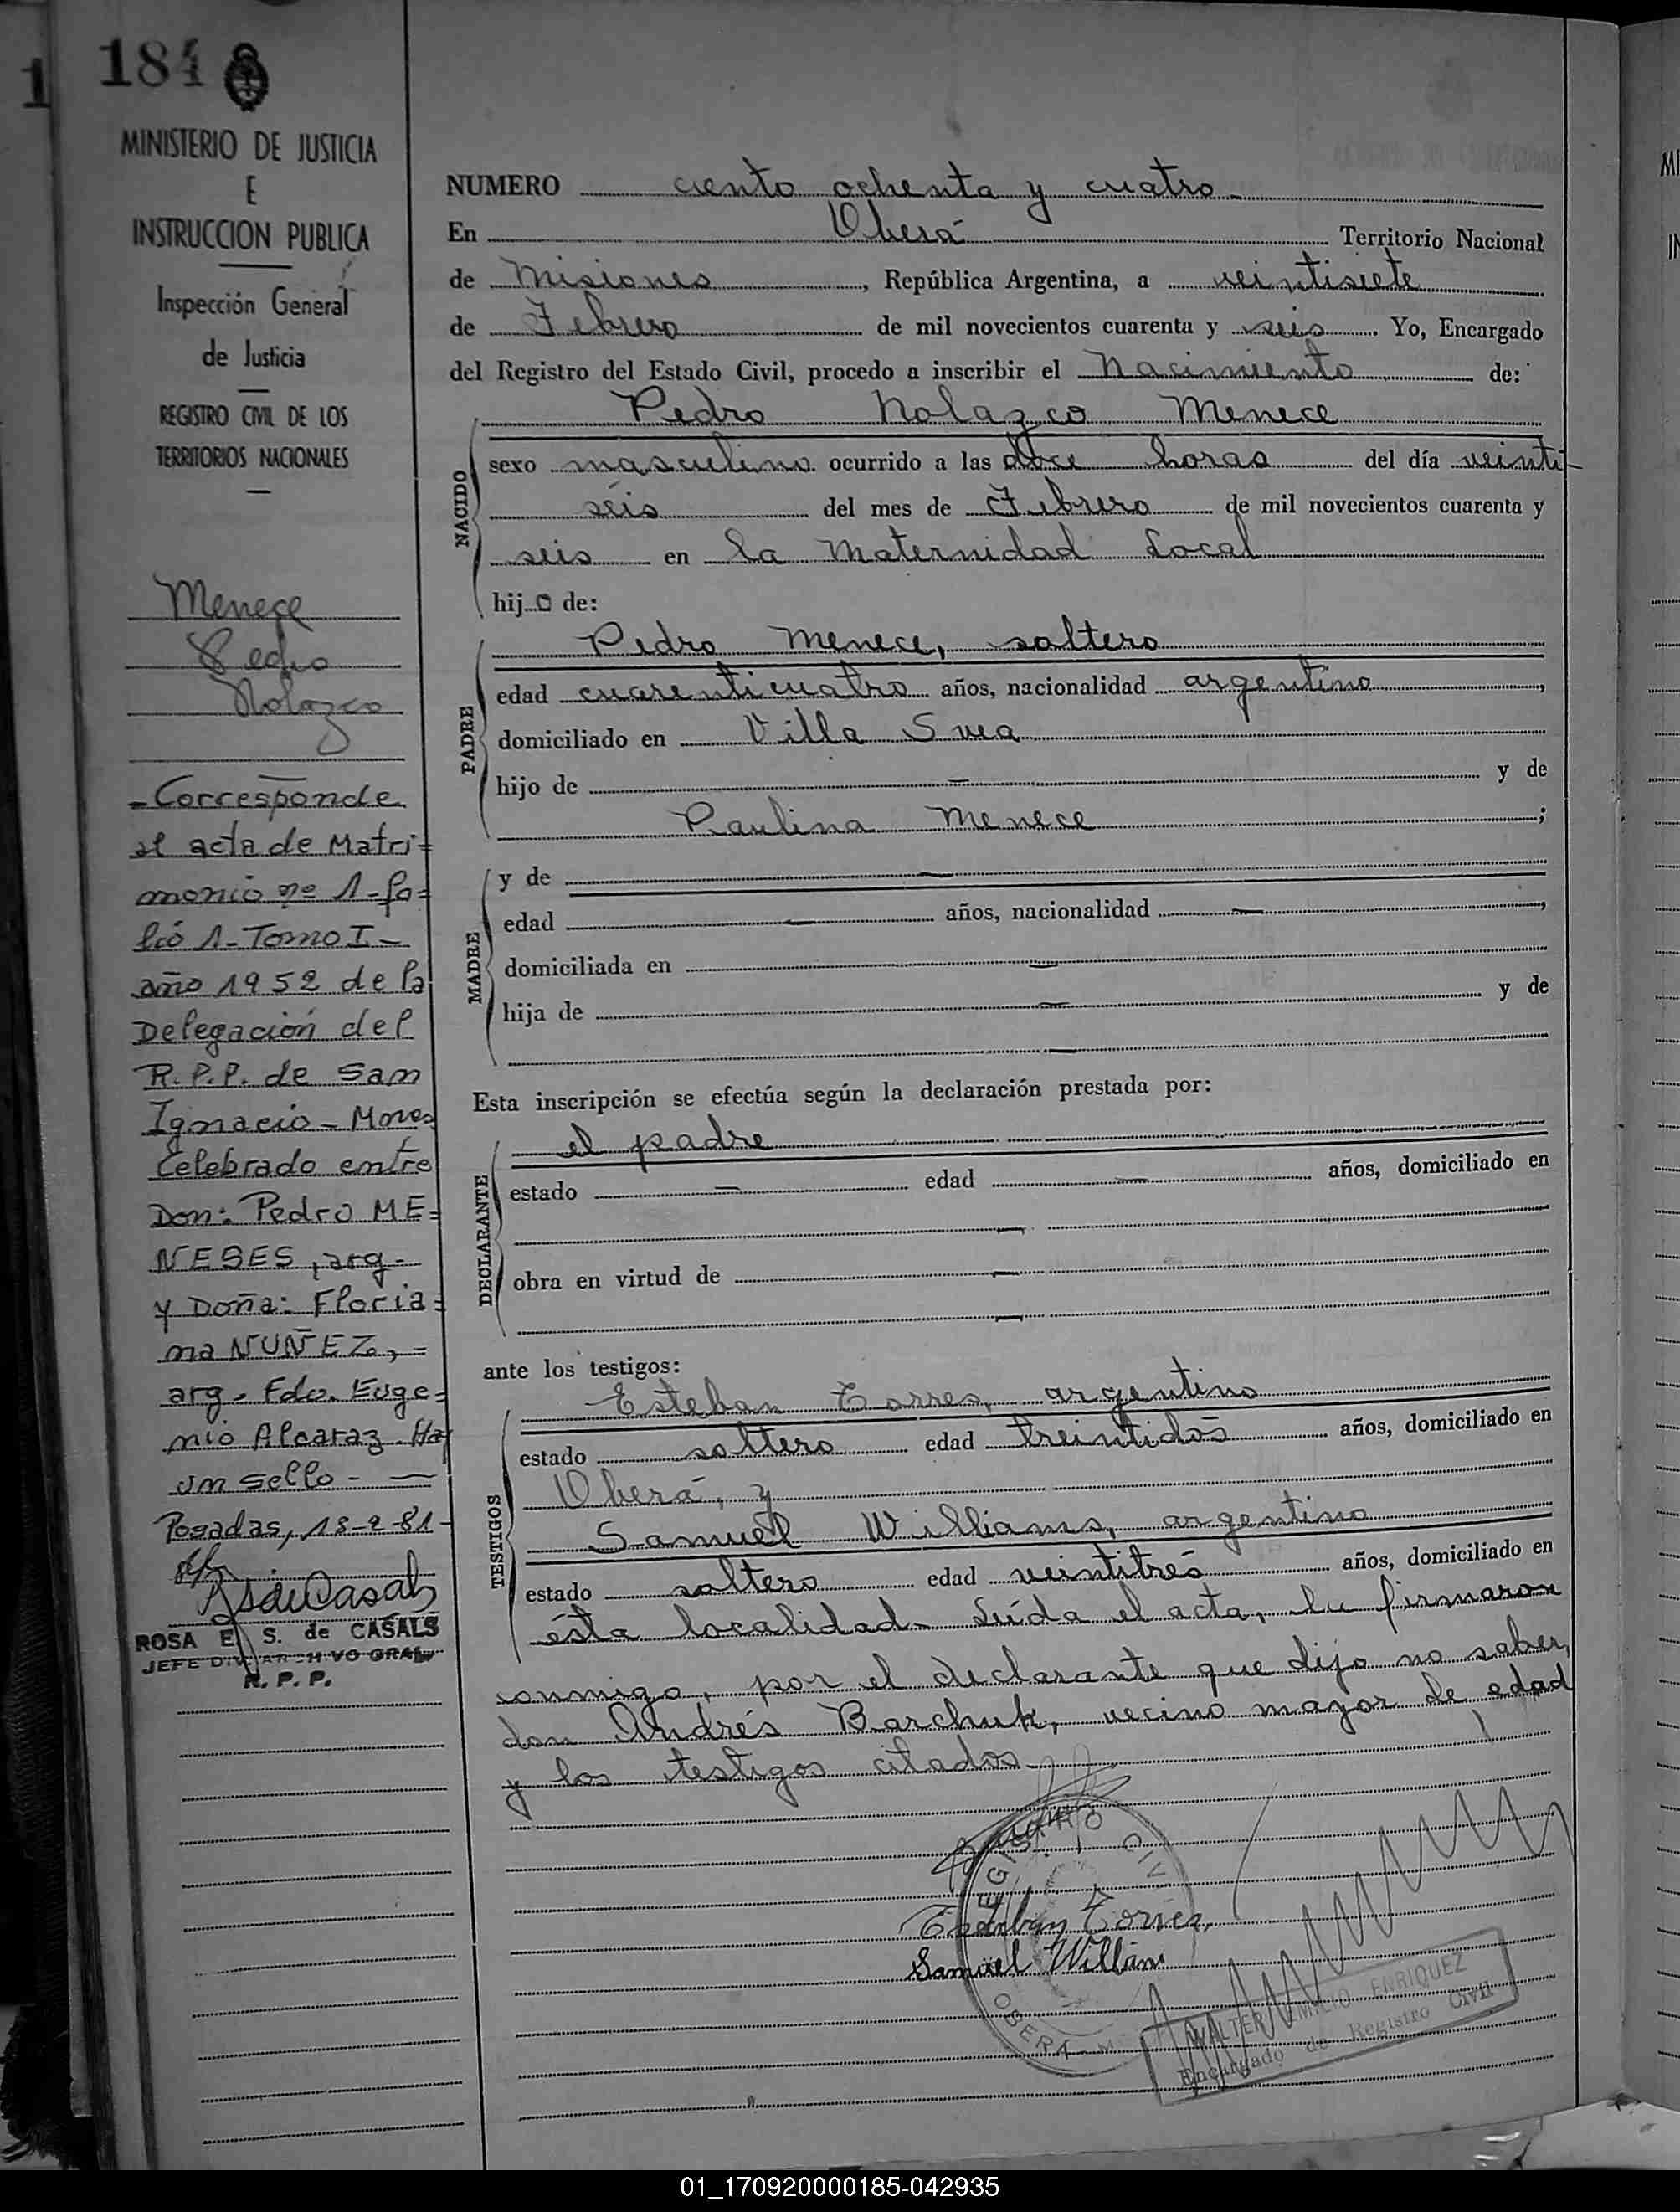 1
184
MINISTERIO DE JUSTICIA
E
INSTRUCCION PUBLICA
Inspección General
de Justicia
REGISTRO CIVIL DE LOS
TERRITORIOS NACIONALES
Menece
Pedro
Nolazco
- Corresponde
al acta de Matri=
monio nº 1 - fo=
lio 1 - Tomo I -
año 1952 de la
Delegación del
R.P.P. de San
Ignacio - Mnes
Celebrado entre
Don: Pedro ME=
NESES, arg.
y Doña: Floria=
na NUÑEZ, =
arg. Fdo. Euge=
nio Alcaraz. Hay
un sello -
Posadas, 18-2-81-
ROSA E. S. de CASALS
JEFE DIV. ARCHIVO GRAL.
R. P. P.
NUMERO ciento ochenta y cuatro
En Oberá Territorio Nacional
de Misiones, República Argentina, a veintisiete
de Febrero de mil novecientos cuarenta y seis. Yo, Encargado
del Registro del Estado Civil, procedo a inscribir el Nacimiento de:
Pedro Nolazco Menece
NACIDO
sexo masculino ocurrido a las doce horas del día veinti-
séis del mes de Febrero de mil novecientos cuarenta y
seis en la Maternidad Local
hijo de:
PADRE
Pedro Menece, soltero
edad cuarenticuatro años, nacionalidad argentino,
domiciliado en Villa Svea
hijo de — y de
Paulina Menece;
MADRE
y de —
edad — años, nacionalidad —,
domiciliada en —
hija de — y de
—
Esta inscripción se efectúa según la declaración prestada por:
DECLARANTE
el padre
estado — edad — años, domiciliado en
—
obra en virtud de —
—
ante los testigos:
TESTIGOS
Esteban Torres, argentino
estado soltero edad treintidós años, domiciliado en
Oberá, y
Samuel Williams, argentino
estado soltero edad veintitrés años, domiciliado en
ésta localidad. Leída el acta, la firmaron
conmigo, por el declarante que dijo no saber,
don Andrés Barchuk, vecino mayor de edad
y los testigos citados.
REGISTRO CIVIL
Esteban Torres
Samuel Willians
OBERA - M
WALTER EMILIO ENRIQUEZ
Encargado de Registro Civil
01_170920000185-042935